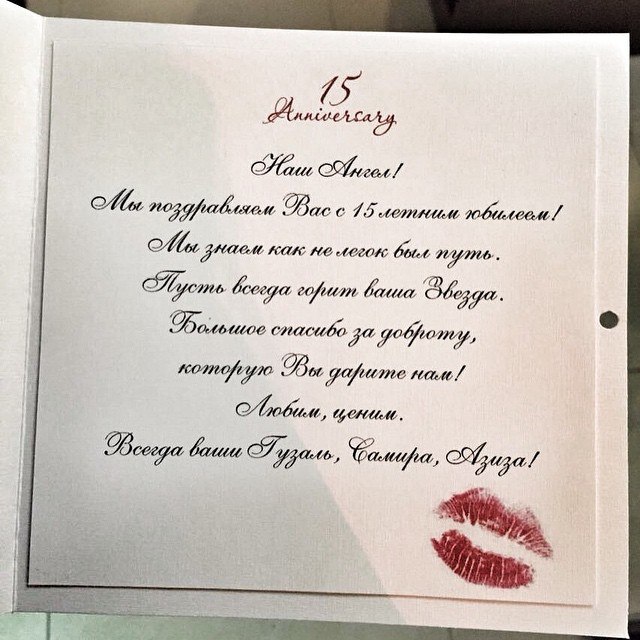 15
Anniversary
Наш Ангел!
Мы поздравляем Вас с 15 летним юбилеем!
Мы знаем как не легок был путь.
Пусть всегда горит ваша Звезда.
Большое спасибо за доброту,
которую Вы дарите нам!
Любим, ценим.
Всегда ваши Гузаль, Самира, Азиза!